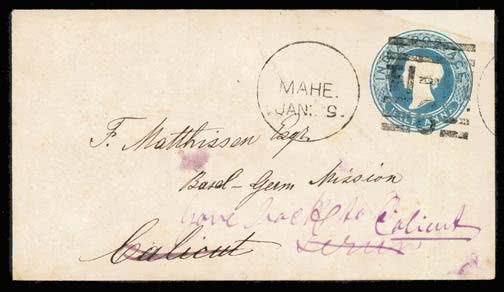 INDIA POSTAGE
HALF ANNA
MAHE.
JAN: 9.
F. Matthissen Esqr
Basel-Germ Mission
gone back to Calicut
Calicut